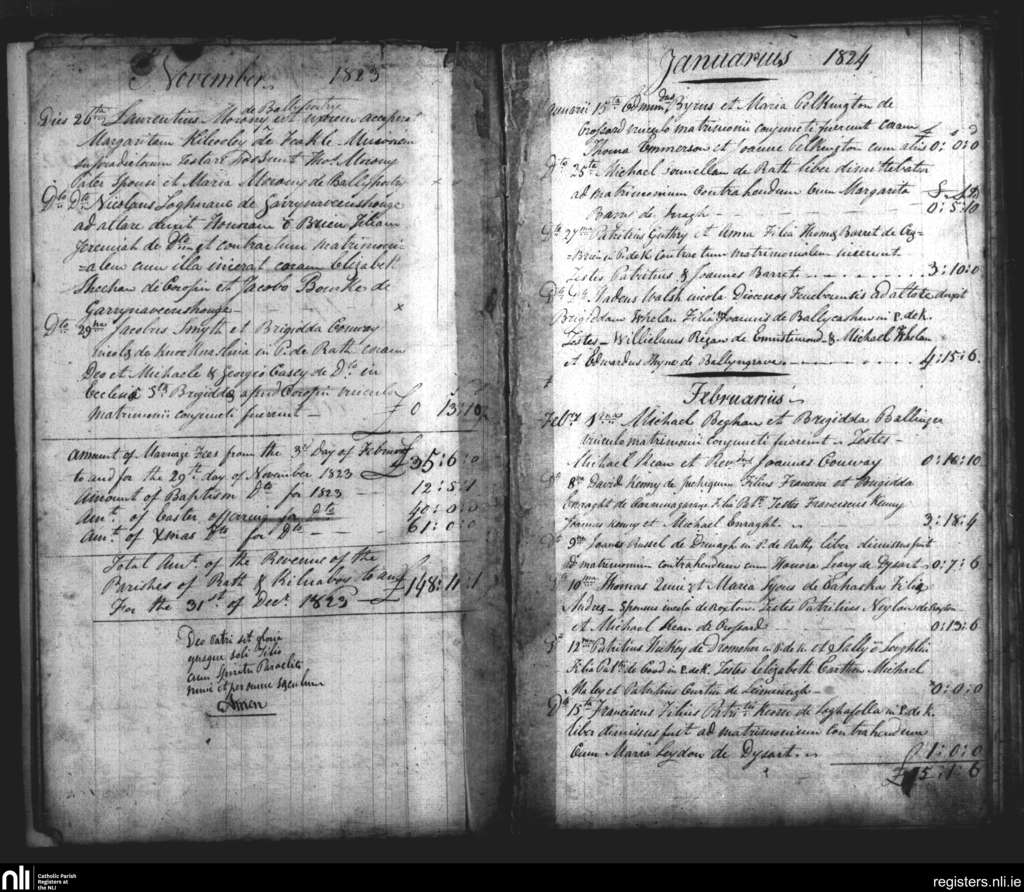 November 1823
Dies 26th Laurentius Morony de Ballyportry et uxorem accepit
Margaritam Kilcooley de Feakle Missionem
infradictorum Testare Possunt Thos. Morony
Pater Sponsi et Maria Morony de Ballyportry
Do. Do. Nicolaus Loghnane de Garrynaveenshouge
ad altare duxit Honoram o Brien Filiam
Jeremiah de Do. et contractum matrimoni
=alem cum illa inierat coram Elizabet.
Sheehan de Corofin et Jacobo Bourke de
Garrynaveenshouge x
Dto. 29 Jacobus Smyth et Brigidda Conway
incola de Knocknethria in P. de Rath coram
Deo et Michaele & Georgio Casey de Do. in
Eclesia Sta Brigidda apud Corofin vinculo
matrimonii conjuncti fuerunt — £ 0 13:10
Amount of Marriage Fees from the 3rd Day of February
to and for the 29th day of November 1823 £35:6:0
Amount of Baptism Dto for 1823 12:5:1
Amt. of Easter offering for Dto 40:0:0
Amt. of Xmas Do for Do — 61:0:0
Total Amt. of the Revenue of the
Parishes of Rath & Kilnaboy to and
For the 31st of Decr. 1823 £148:11:1
Deo Patri sit gloria
ejusque soli Filio
cum Spiritu Paraclito
nunc et per omne saeculum
Amen
Januarius 1824
Januarii 15th Edmundus Byrns et Maria Pelkington de
Crossard vinculo matrimonii conjuncti fuerunt coram £ s d
Thoma Emmerson et Joanne Pelkington cum aliis 0:0:0
Dto 25ta Michael de Rath liber dimittebatur
ad matrimonium contrahendum Cum Margarita
de 0:5:10
Do 27 Patritius Guthry et Anna Filia Thoma Barret de
in P. de K. contractum matrimonialem inierunt
Testes Patritius & Joannes Barret. 3:10:0
Do. Do. Walsh incola Diocenos ad altare duxit
Brigiddam Whelan Filia Joannis de Ballycashen in P. de K.
Testes — Willielmus Regan de & Michael Whelan
et Edwardus de 4:15:6.
Februarius
Febry 1 Michael Beghan et Brigidda Ballinger
vinculo matrimonii conjuncti fuerunt — Testes —
Michael Kean et Revd. Joannes Conway 0:10:10
Do 8 David Kenny de Filius Francisci et Brigidda
Enraght de Filia Patt. Testes Franciscus Kenny
Joannes Kenny et Michael Enraght. 3:18:4
Do 9 Joanes Russel de in P. de Rath, liber dimissus fuit
Ad matrimonium contrahendum cum Honora Leary de Dysart 0:7:6
10 Thomas Quin et Maria de Cahaska Filia
Andreæ Sponsus incola de Roxton Testes Patritius Neylon de Roxton
et Michael Kean de Crossard 0:13:6
Do 12 Patritius de in P. de K. et o Loughlin
Filia Patt. de in P. de K. Testes Elizabeth Michael
et Patritius Curtin de Leimineigh — 0:0:0
Do 15 Franciscus Filius in P. de K.
liber dimissus fuit ad matrimonium contrahendum
Cum Maria Leydon de Dysart. 1:0:0
£15:1:6
nli Catholic Parish
Registers at
the NLI
registers.nli.ie